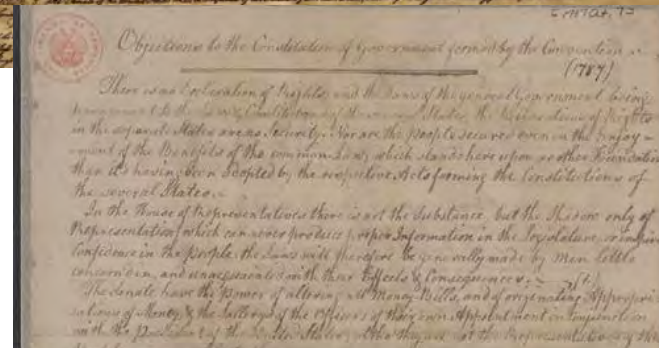 Objections to the Constitution of Government formed by the Convention
(1787)
There is no Declaration of Rights; and the Laws of the general Government being
paramount to the Laws & Constitutions of the several States, the Declaration of Rights
in the separate States are no Security. Nor are the people secured even in the Enjoy-
ment of the Benefits of the common-Law, which stands here upon no other Foundation
than it's having been adopted by the respective Acts forming the Constitutions of
the several States.
In the House of Representatives there is not the Substance, but the Shadow only of
Representation; which can never produce proper Information in the Legislature, or inspire
Confidence in the People: the Laws will therefore be generally made by Men little
concern'd in, and unacquainted with their Effects & Consequences.
The Senate have the power of altering all Money-Bills, and of originating Appropri
ations of Money, & the Sallerys of the Officers of their own Appointment in Conjunction
with the President of the United States; altho' they are not the Representatives of the